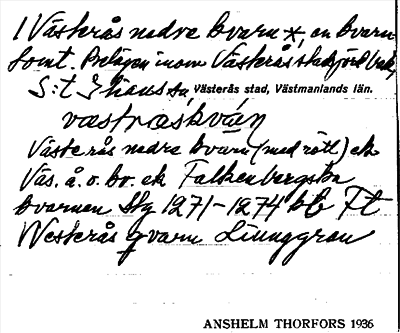 1 Västerås nedre kvarn *, en kvarn-
tomt. Belägen inom Västerås stadsjord
S:t Västerås stad, Västmanlands län.
västraskván
Västerås nedre kvarn (med rött) ek
Väs. å. o. bv. ek Falkenbergska
kvarnen Stg 1271-1274 bb Ft
Westerås qvarn Liunggren
ANSHELM THORFORS 1936